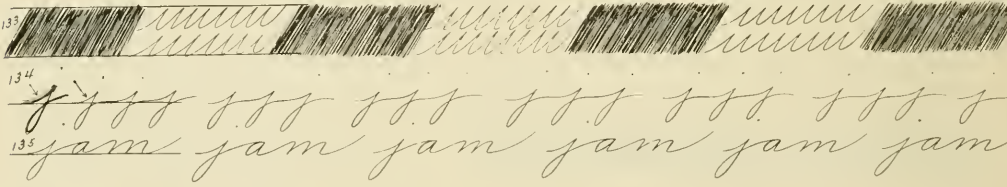 133
134 j j j j jjj jjj jjj jjj jjj j
135 jam jam jam jam jam jam